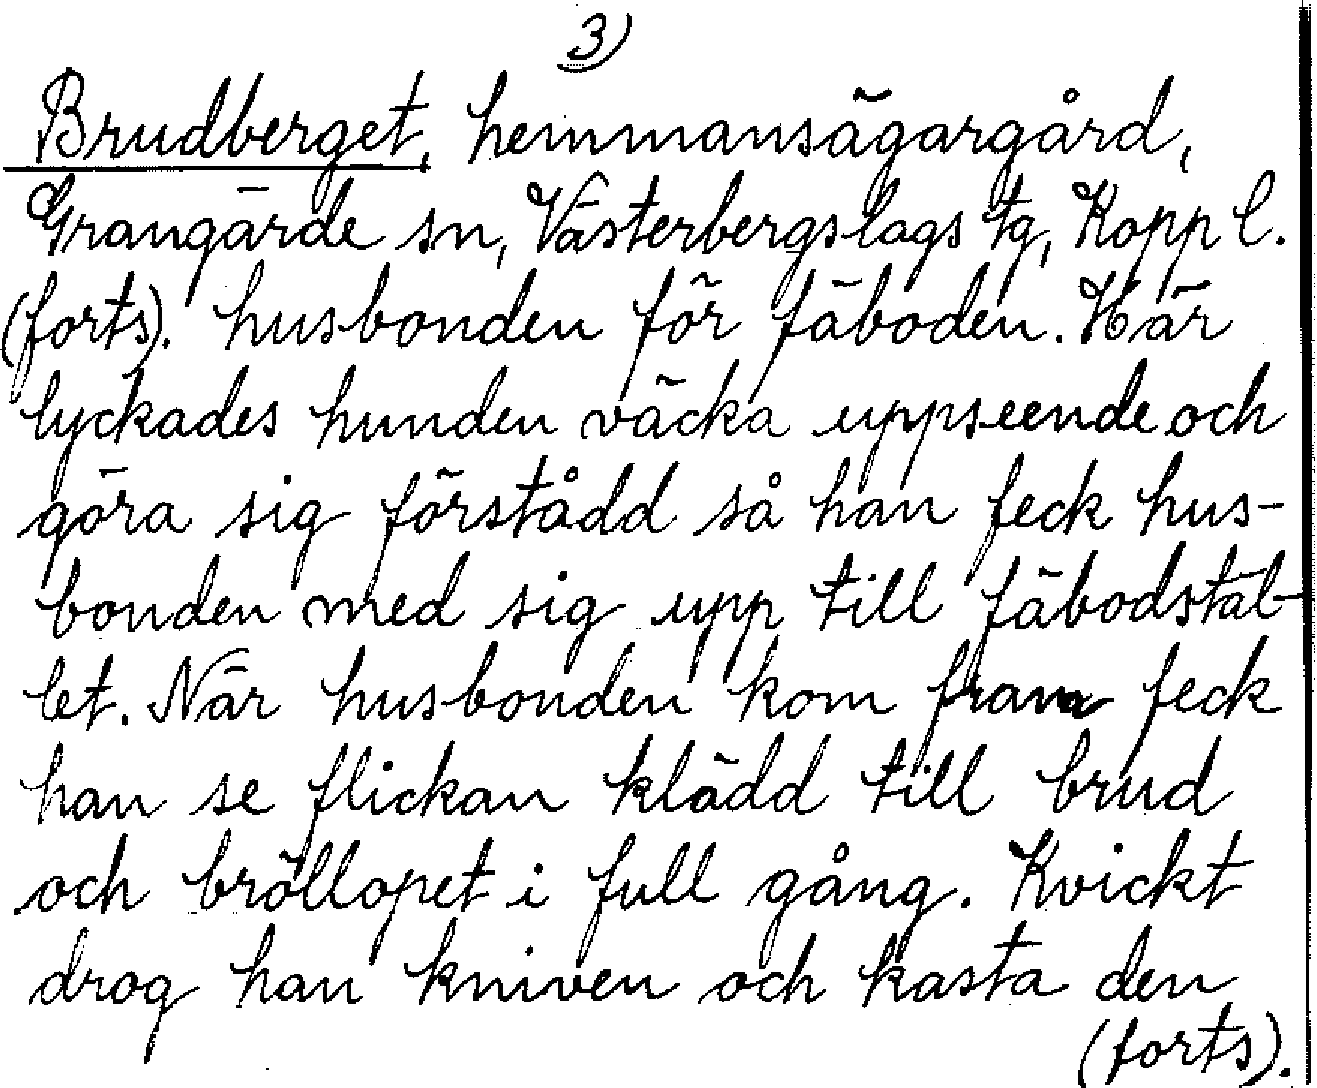 3)
Brudberget, hemmansägargård,
Grangärde sn, Västerbergslags tg, Kopp l.
(forts). husbonden för fäboden. Här
lyckades hunden väcka uppseende och
göra sig förstådd så han feck hus-
bonden med sig upp till fäbodstäl-
let. När husbonden kom fram feck
han se flickan klädd till brud
och bröllopet i full gång. Kvickt
drog han kniven och kasta den
(forts).